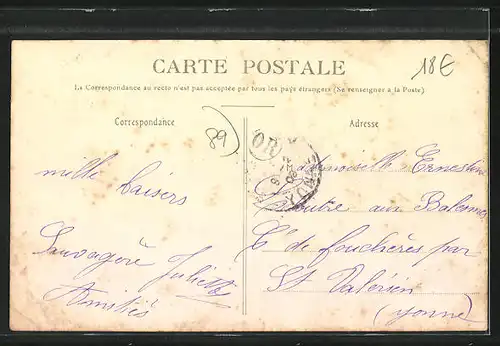 CARTE POSTALE
La Correspondance au recto n'est pas acceptée par tous les pays étrangers (Se renseigner à la Poste)
18€
Correspondance
89
Adresse
OR
YONNE
mille baisers
Sauvagère Juliette
Amitiés
Mademoiselle Ernestine
aux
de fouchères par
St Valérien
(yonne)